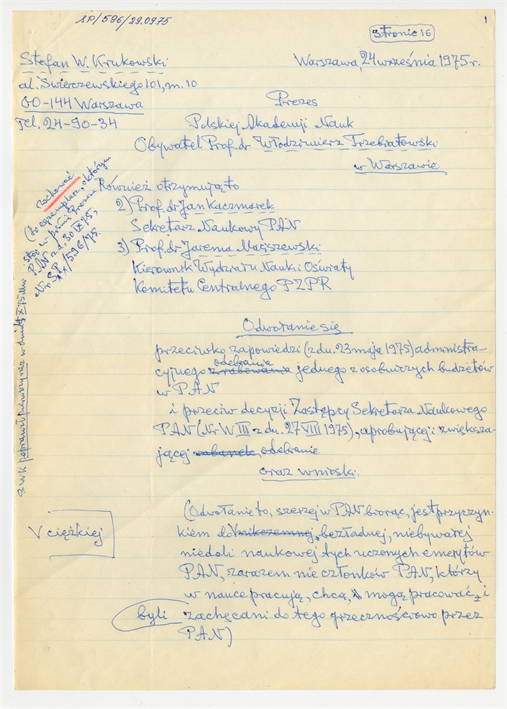 SP/596/29.09.75
1
Stronic 16
Stefan W. Krukowski
al. Świerczewskiego 101, m. 10
00-144 Warszawa
Tel. 24-90-34
Warszawa, 24 września 1975 r.
Prezes
Polskiej Akademji Nauk
Obywatel Prof. dr Włodzimierz Trzebiatowski
w Warszawie
Również otrzymują to
2) Prof. dr Jan Kaczmarek
Sekretarz Naukowy PAN
3) Prof. dr Jarema Maciszewski
Kierownik Wydziału Nauki i Oświaty
Komitetu Centralnego PZPR
zachować
(to egzemplarz, o którym
w piśmie Prezesa
PAN z d. 30 IX 75,
Nr SP/596/75.
Odwołanie się
przeciwko zapowiedzi (z du. 23 maja 1975) administra-
cyjnego odebrania jednego z osobniczych budżetów
w PAN
i przeciw decyzji Zastępcy Sekretarza Naukowego
PAN (Nr W III z du. 27 VIII 1975), aprobującej i zwiększa-
jącej odebranie
oraz wnioski.
V ciężkiej
(Odwołanie to, szerzej w PAN biorąc, jest przyczyn-
kiem do bezładnej, niebywałej
niedoli naukowej tych uczonych emerytów
PAN, zarazem nie członków PAN, którzy
w nauce pracują, chcą, mogą pracować i
byli zachęcani do tego grzecznościowo przez
PAN)